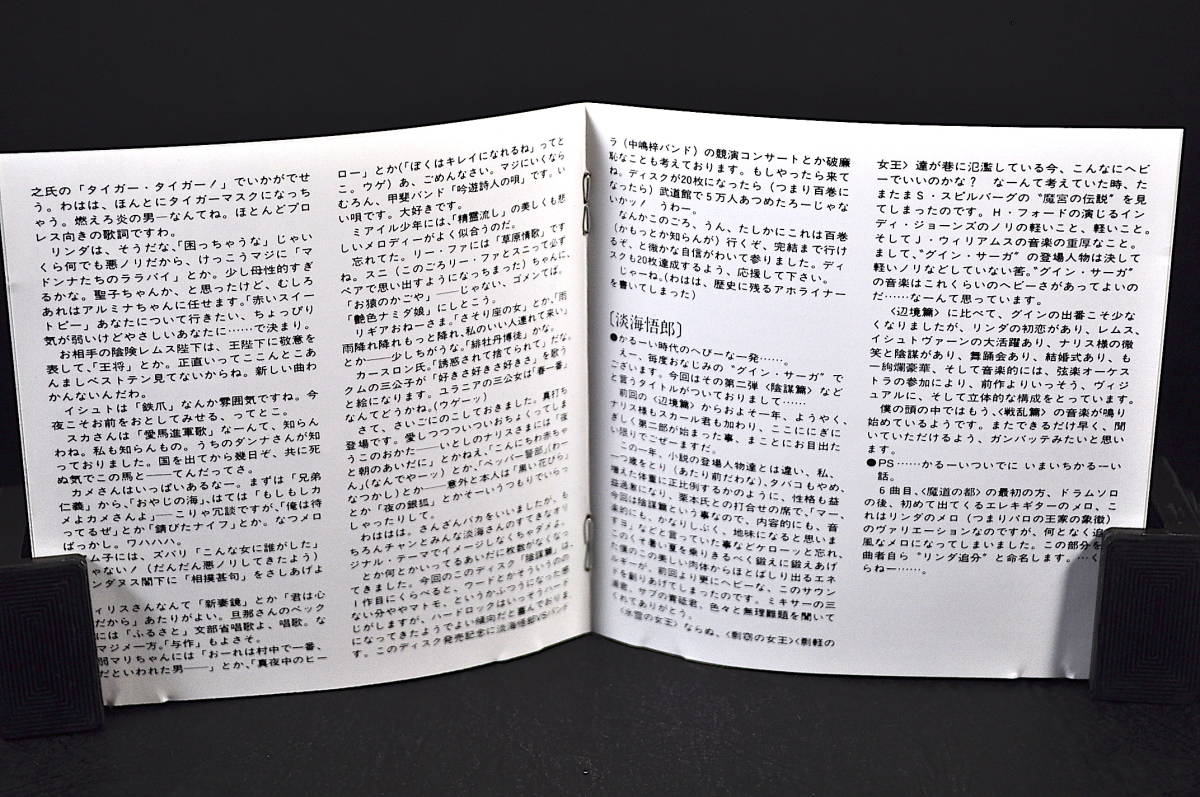 之氏の「タイガー・タイガー!」でいかがでせ
う。わはは、ほんとにタイガーマスクになっち
ゃう。燃えろ炎の男―なんてね。ほとんどプロ
レス向きの歌詞ですわ。
リンダは、そうだな、「困っちゃうな」じゃい
くら何でも悪ノリだから、けっこうマジに「マ
ドンナたちのララバイ」とか。少し母性的すぎ
るかな。聖子ちゃんか、と思ったけど、むしろ
あれはアルミナちゃんに任せます。「赤いスイー
トピー」あなたについて行きたい、ちょっぴり
気が弱いけどやさしいあなたに……で決まり。
お相手の陰険レムス陛下は、王陛下に敬意を
表して、「王将」とか。正直いってここんとこあ
んましベストテン見てないからね。新しい曲わ
かんないんだわ。
イシュトは「鉄爪」なんか雰囲気ですね。今
夜こそお前をおとしてみせる、ってとこ。
スカさんは「愛馬進軍歌」なーんて、知らん
わね。私も知らんもの。うちのダンナさんが知
っておりました。国を出てから幾日ぞ、共に死
ぬ気でこの馬と――てんだってさ。
カメさんはいっぱいあるなー。まずは「兄弟
仁義」から、「おやじの海」、はては「もしもしカ
メよカメさんよ」―こりゃ冗談ですが、「俺は待
ってるぜ」とか「錆びたナイフ」とか。なつメロ
ばっかし。ワハハハ。
ム子には、ズバリ「こんな女に誰がした」
ゃない!(だんだん悪ノリしてきたよう)
ンダヌス閣下に「相撲甚句」をさしあげよ
ィリスさんなんて「新妻鏡」とか「君は心
だから」あたりがよい。旦那さんのベック
には「ふるさと」文部省唱歌よ、唱歌。な
マジメ一方。「与作」もよさそ。
弱マリちゃんには「おーれは村中で一番、
だといわれた男――」とか、「真夜中のヒー
ロー」とか(「ぼくはキレイになれるね」ってと
こ。ウゲ)あ、ごめんなさい。マジにいくなら
むろん、甲斐バンド「吟遊詩人の唄」です。い
い唄です。大好きです。
ミアイル少年には、「精霊流し」の美しくも悲
しいメロディーがよく似合うのだ。
忘れてた。リー・ファには「草原情歌」です
ね。スニ(このごろリー・ファとスニって必ず
ペアで思い出すようになっちまった)ちゃんに、
「お猿のかごや」――じゃない、ゴメンてば。
「艶色ナミダ娘」にしとこう。
リギアおねーさま。「さそり座の女」とか、「雨
雨降れ降れもっと降れ、私のいい人連れて来い」
とか――少しちがうな。「緋牡丹博徒」かな。
カースロン氏。「誘惑されて捨てられて」だな。
クムの三公子が「好きさ好きさ好きさ」を歌う
と絵になります。ユラニアの三公女は「春一番」
なんてどうかね。(ウゲーッ)
さて、さいごにのこしておきました。真打ち
登場です。愛しつつついついおちょくってしま
うこのおかた――いとしのナリスさまには「夜
と朝のあいだに」とかねえ、「こんにちわ赤ちゃ
ん」(なんでやーッ)とか、「ペッパー警部」(わー
なつかし)とか――意外と本人は「黒い花びら」
とか「夜の銀狐」とかそーいうつもりでいらっ
しゃったりして。
わははは。さんざんバカをいいましたが、も
ちろんチャンとみんな淡海さんのすてきなオリ
ジナル・テーマでイメージしなくちゃダメよ。
とか何とかいってるあいだに枚数がなくなっ
てきました。今回のこのディスク「陰謀篇」は、
Ⅰ作目にくらべると、ワードとかそういうのが
ない分ややマトモ、というかふつうになった感
じがしますが、ハードロックはいっそうハード
になってきたようでよい傾向だと喜んでおりま
す。このディスク発売記念に淡海悟郎VSパンド
ラ(中嶋梓バンド)の競演コンサートとか破廉
恥なことも考えております。もしやったら来て
ね。ディスクが20枚になったら(つまり百巻に
なったら)武道館で5万人あつめたろーじゃな
いかッ! うわー。
なんかこのごろ、うん、たしかにこれは百巻
(かもっとか知らんが)行くぞ、完結まで行け
るぞ、と微かな自信がわいて参りました。ディ
スクも20枚達成するよう、応援して下さい。
じゃーね。(わはは、歴史に残るアホライナー
を書いてしまった)
[淡海悟郎]
●かるーい時代のへびーな一発……。
えー、毎度おなじみの“グイン・サーガ”で
ございます。今回はその第二弾〈陰謀篇〉など
と言うタイトルがついておりまして……
前回の〈辺境篇〉からおよそ一年、ようやく、
ナリス様もスカール君も加わり、ここににぎに
ぎしく第二部が始まった事、まことにお目出た
い限りでごぜーますだ。
この一年、小説の登場人物達とは違い、私、
一つ歳をとり(あたり前だわな)、タバコもやめ、
増えた体重に正比例するかのように、性格も益
益過激になり、栗本氏との打合せの席で、「マー、
今回は陰謀篇という事なので、内容的にも、音
楽的にも、かなりしぶく、地味になると思いま
すヨ」などと言っていた事などケローッと忘れ、
このくそ暑い夏を乗りきるべく鍛えに鍛えあげ
た僕のこの美しい肉体からほとばしり出るエネ
ルギーが、前回より更にヘビーな、このサウン
ドを創りあげてしまったのです。ミキサーの三
浦君、サブの青砥君、色々と無理難題を聞いて
くれてありがとう。
〈氷雪の女王〉ならぬ、〈剽窃の女王〉〈剽軽の
女王〉達が巷に氾濫している今、こんなにヘビ
ーでいいのかな? なーんて考えていた時、た
またまS・スピルバーグの“魔宮の伝説”を見
てしまったのです。H・フォードの演じるイン
ディ・ジョーンズのノリの軽いこと、軽いこと。
そしてJ・ウィリアムスの音楽の重厚なこと。
まして、“グイン・サーガ”の登場人物は決して
軽いノリなどしていない筈。“グイン・サーガ”
の音楽はこれくらいのヘビーさがあってよいの
だ……なーんて思っています。
〈辺境篇〉に比べて、グインの出番こそ少な
くなりましたが、リンダの初恋があり、レムス、
イシュトヴァーンの大活躍あり、ナリス様の微
笑と陰謀があり、舞踊会あり、結婚式あり、も
一絢爛豪華、そして音楽的には、弦楽オーケス
トラの参加により、前作よりいっそう、ヴィジ
ュアルに、そして立体的な構成をとっています。
僕の頭の中ではもう、〈戦乱篇〉の音楽が鳴り
始めているようです。またできるだけ早く、聞
いていただけるよう、ガンバッテみたいと思い
ます。
●PS……かるーいついでに いまいちかるーい
話。
6曲目、〈魔道の都〉の最初の方、ドラムソロ
の後、初めて出てくるエレキギターのメロ、こ
れはリンダのメロ(つまりパロの王家の象徴)
のヴァリエーションなのですが、何となく追
風なメロになってしまいました。この部分を
曲者自ら“リンダ追分”と命名します。…く
らねー……。